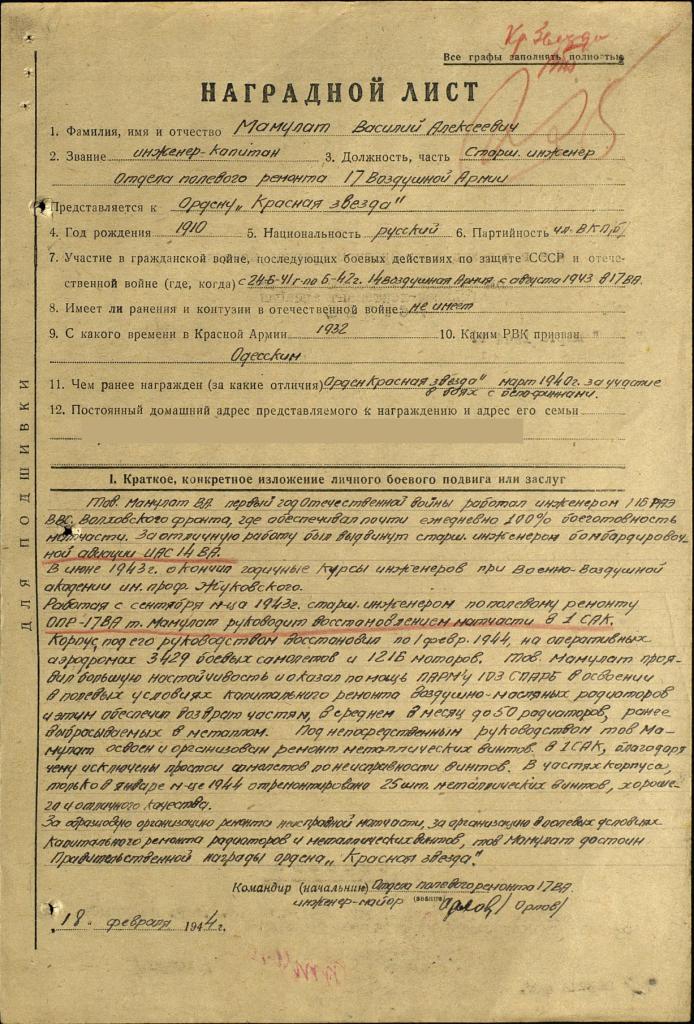 Кр Звезда
Все графы заполнять полностью
НАГРАДНОЙ ЛИСТ
1. Фамилия, имя и отчество Мамулат Василий Алексеевич
2. Звание инженер-капитан 3. Должность, часть Старш. инженер
Отдела полевого ремонта 17 Воздушной Армии
Представляется к Ордену „Красная звезда"
4. Год рождения 1910 5. Национальность русский 6. Партийность чл. ВКП(б)
7. Участие в гражданской войне, последующих боевых действиях по защите СССР и отече-
ственной войне (где, когда) с 24-6-41г по 6-42г. 14 Воздушная Армия, с августа 1943 в 17 ВА.
8. Имеет ли ранения и контузии в отечественной войне не имеет
9. С какого времени в Красной Армии 1932 10. Каким РВК призван
Одесским
11. Чем ранее награжден (за какие отличия) Орден Красная звезда" март 1940г. за участие
в боях с белофиннами.
12. Постоянный домашний адрес представляемого к награждению и адрес его семьи
I. Краткое, конкретное изложение личного боевого подвига или заслуг
Тов. Мамулат ВА первый год Отечественной войны работал инженером
ВВС Волховского фронта, где обеспечивал почти ежедневно 100% боеготовность
матчасти. За отличную работу был выдвинут старш. инженером бомбардировоч-
ной авиации ИАС 14 ВА.
В июне 1943г. окончил годичные курсы инженеров при Военно-Воздушной
академии им. проф. Жуковского.
Работая с сентября м-ца 1943г. старш. инженером по полевому ремонту
ОПР-17ВА т. Мамулат руководит восстановлением матчасти в 1 САК.
Корпус, под его руководством восстановил по 1 февр. 1944, на оперативных
аэродромах 3429 боевых самолетов и 1216 моторов. Тов. Мамулат проя-
вил большую настойчивость и оказал помощь ПАРМУ 103 СПАРБ в освоении
в полевых условиях капитального ремонта воздушно-масляных радиаторов
и этим обеспечил возврат частям, в среднем в месяц до 50 радиаторов, ранее
выбрасываемых в металлом. Под непосредственным руководством тов Ма-
мулат освоен и организован ремонт металлических винтов. В 1 САК, благодаря
чему исключены простои самолетов по неисправности винтов. В частях корпуса,
только в январе м-це 1944 отремонтировано 25 шт. металлических винтов, хороше-
го и отличного качества.
За образцовую организацию ремонта неисправной матчасти, за организацию в полевых условиях
капитального ремонта радиаторов и металлических винтов, тов Мамулат достоин
Правительственной награды ордена „Красная звезда".
Командир (начальник) Отдела полевого ремонта 17 ВА
инженер-майор (звание) Орлов /Орлов/
18 февраля 1944 г.
ДЛЯ ПОДШИВКИ